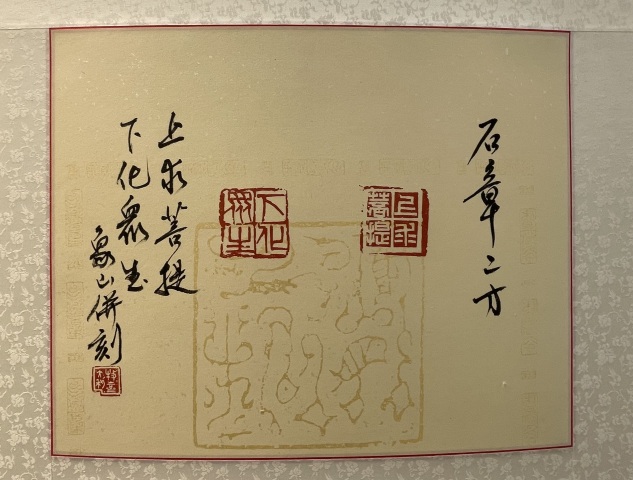 石章二方
上求
菩提
下化
眾生
上求菩提
下化眾生
象山併刻